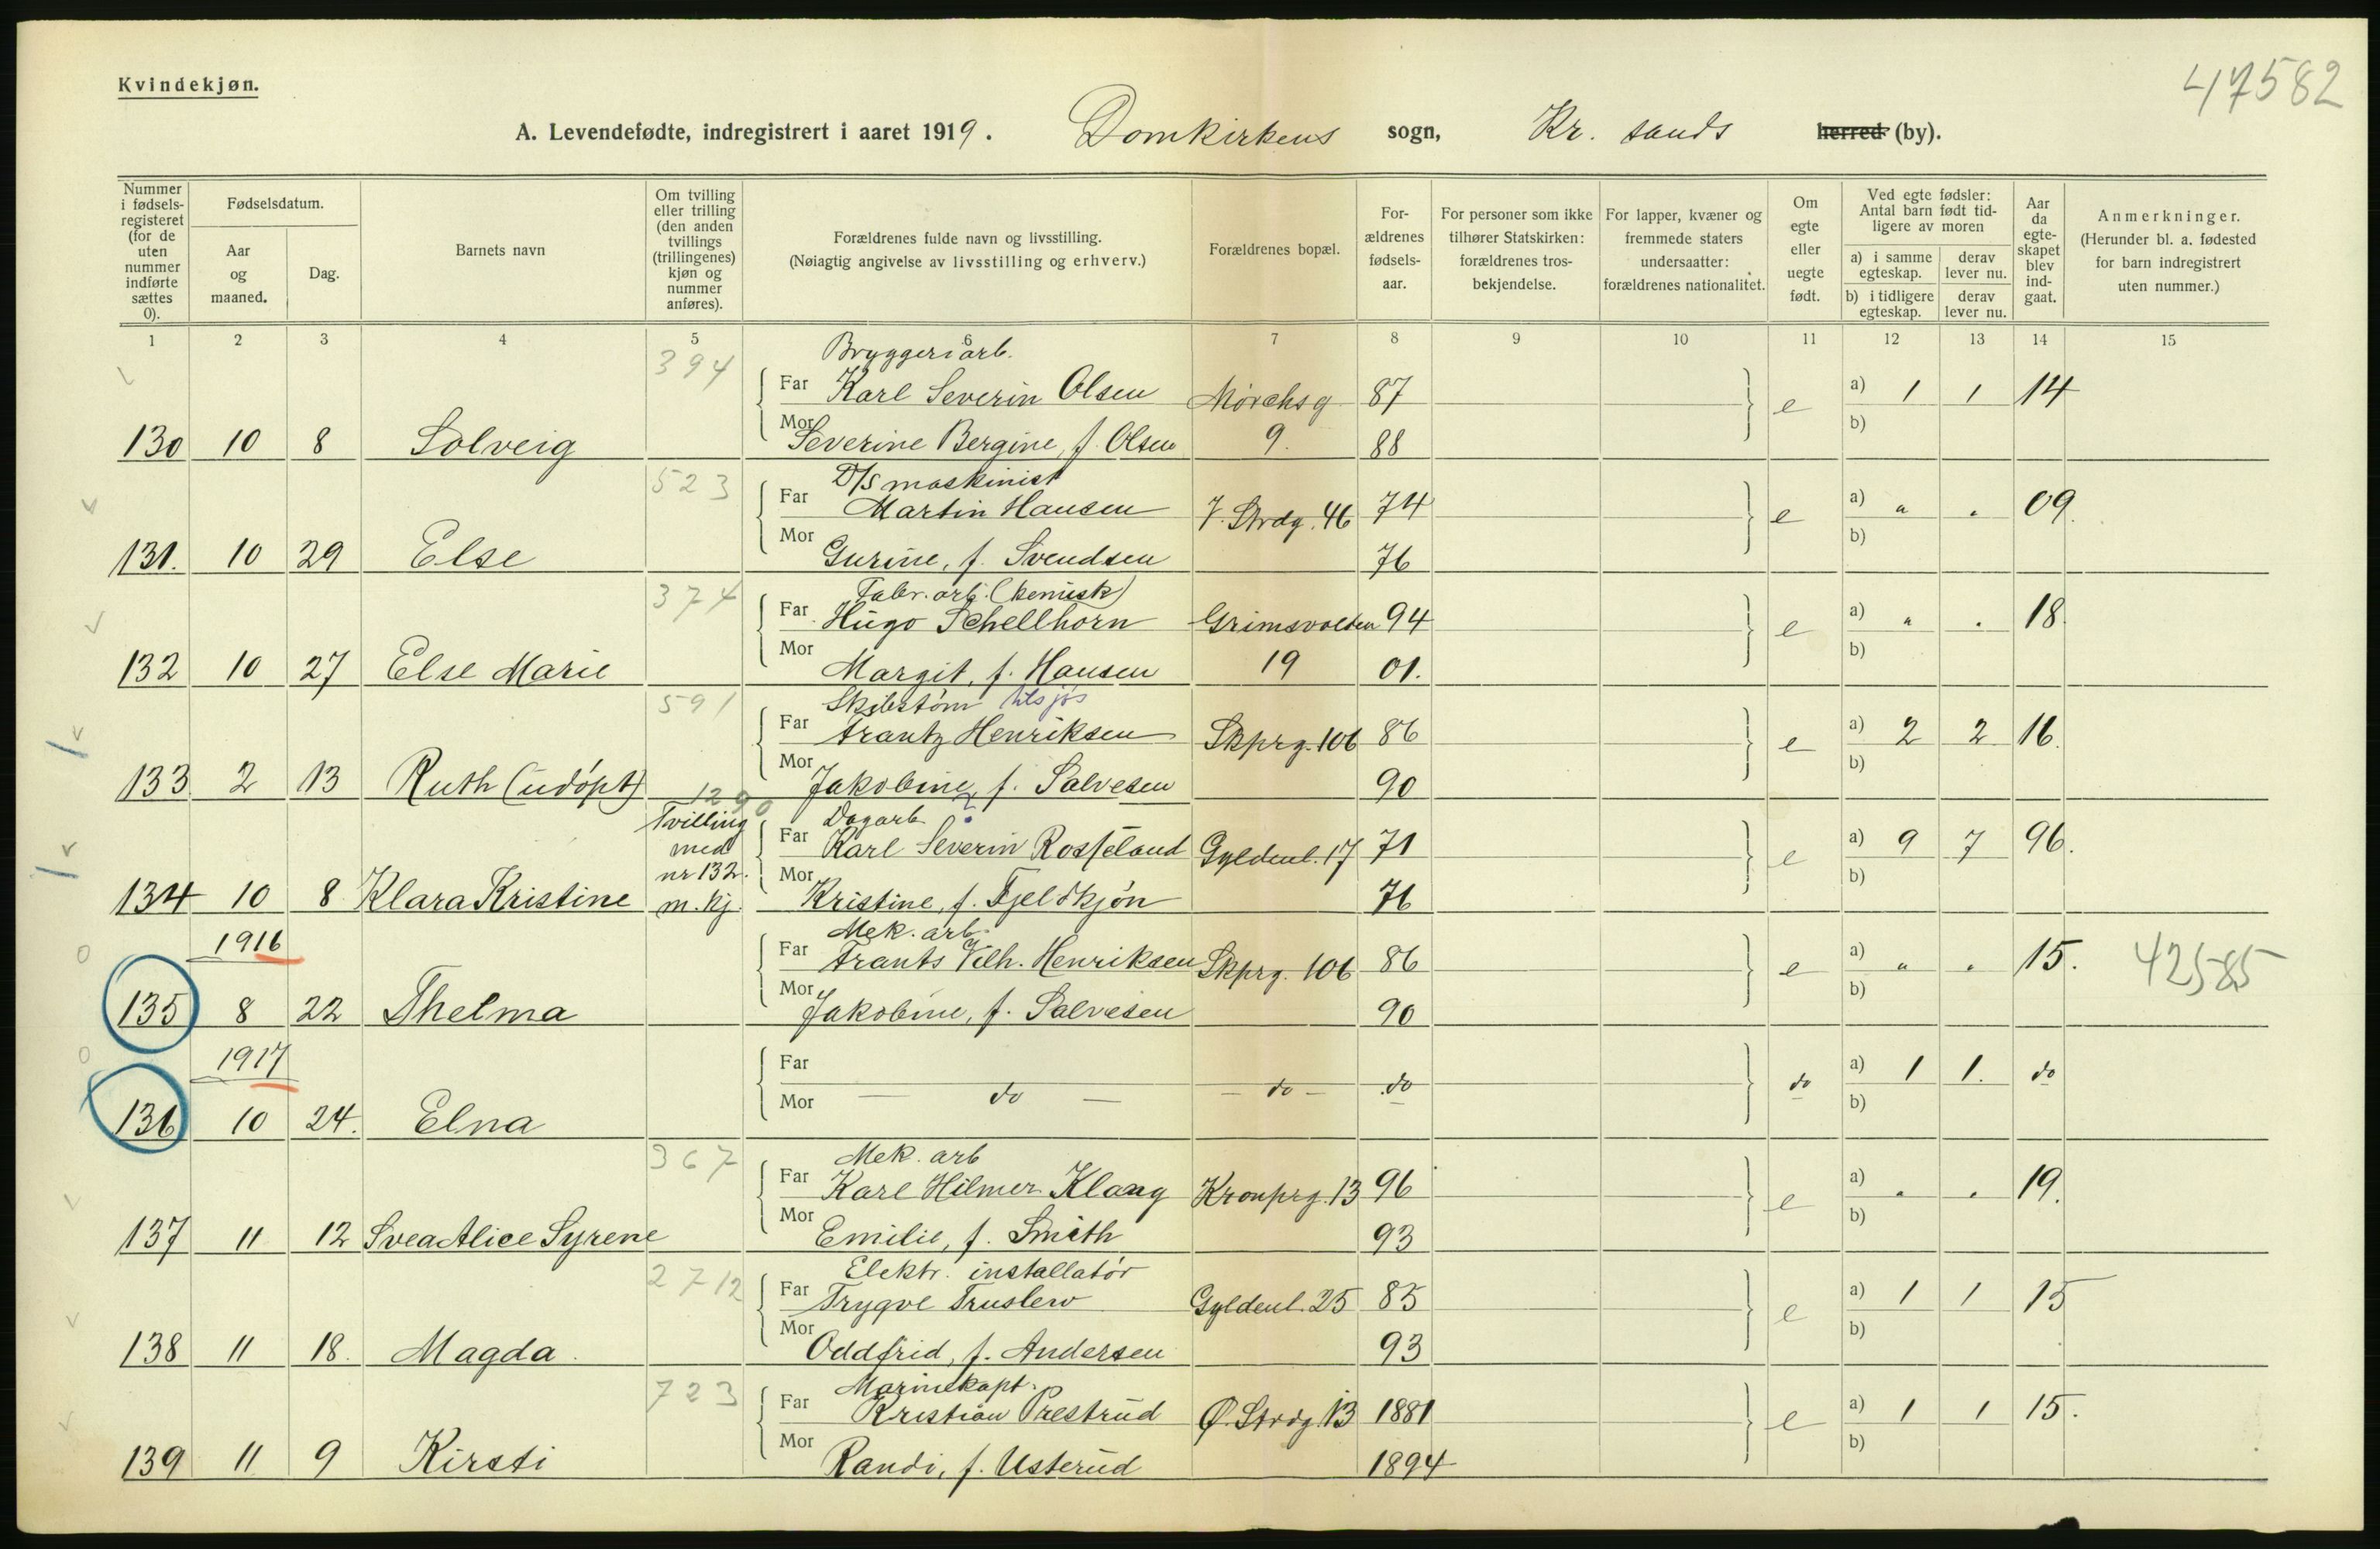 Kvindekjøn.
47582
A. Levendefødte, indregistrert i aaret 1919. Domkirkens sogn, Kr. sands herred (by).
Nummer i fødsels-registeret (for de uten nummer indførte sættes 0).
Fødselsdatum.
Aar og maaned.
Dag.
Barnets navn
Om tvilling eller trilling (den anden tvillings (trillingenes) kjøn og nummer anføres).
Forældrenes fulde navn og livsstilling.
(Nøiagtig angivelse av livsstilling og erhverv.)
Forældrenes bopæl.
For-ældrenes fødsels-aar.
For personer som ikke tilhører Statskirken: forældrenes tros-bekjendelse.
For lapper, kvæner og fremmede staters undersaatter: forældrenes nationalitet.
Om egte eller uegte født.
Ved egte fødsler: Antal barn født tid-ligere av moren
a) i samme egteskap.
derav lever nu.
b) i tidligere egteskap.
derav lever nu.
Aar da egte-skapet blev ind-gaat.
Anmerkninger.
(Herunder bl. a. fødested for barn indregistrert uten nummer.)
1 2 3 4 5 6 7 8 9 10 11 12 13 14 15
394 Bryggeriarb.
Far Karl Severin Olsen Mørchsg 87 e a) 1 1 14
130 10 8 Solveig Mor Severine Bergine, f. Olsen 9. 88 b)
523 D/S maskinist
Far Martin Hansen V. Strdg. 46 74 e a) " " 09.
131. 10 29 Else Mor Gurine, f. Svendsen 76 b)
374 Fabr. arb. (kemisk)
Far Hugo Schellhorn Grimsvolden 94 e a) " " 18.
132 10 27 Else Marie Mor Margit, f. Hansen 19 01. b)
591 Skibstøm tilsjøs
Far Frantz Henriksen Skprg. 106 86 e a) 2 2 16.
133 2 13 Ruth (udøpt) Mor Jakobine, f. Salvesen 90 b)
1290 Tvilling med nr 132. m. kj. Dagarb
Far Karl Severin Rosseland Gyldenl. 17 71 e a) 9 7 96.
134 10 8 Klara Kristine Mor Kristine, f. Fjeldkjøn 76 b)
1916 Mek. arb.
Far Frants Vilh. Henriksen Skprg. 106 86 e a) " " 15. 42585
135 8 22 Thelma Mor Jakobine, f. Salvesen 90 b)
1917 Far
do do do do a) 1 1. do
136 10 24. Elna Mor b)
367 Mek. arb
Far Karl Hilmer Klang Kronprg. 13 96 e a) " " 19.
137 11 12 Svea Alice Syrene Mor Emilie, f. Smith 93 b)
2712 Elektr. installatør
Far Trygve Truslew Gyldenl. 25 85 e a) 1 1 15
138 11 18. Magda. Mor Oddfrid, f. Andersen 93 b)
723 Marinekapt.
Far Kristian Prestrud Ø. Strdg 13 1881 e a) 1 1 15.
139 11 9 Kirsti Mor Randi, f. Usterud 1894 b)